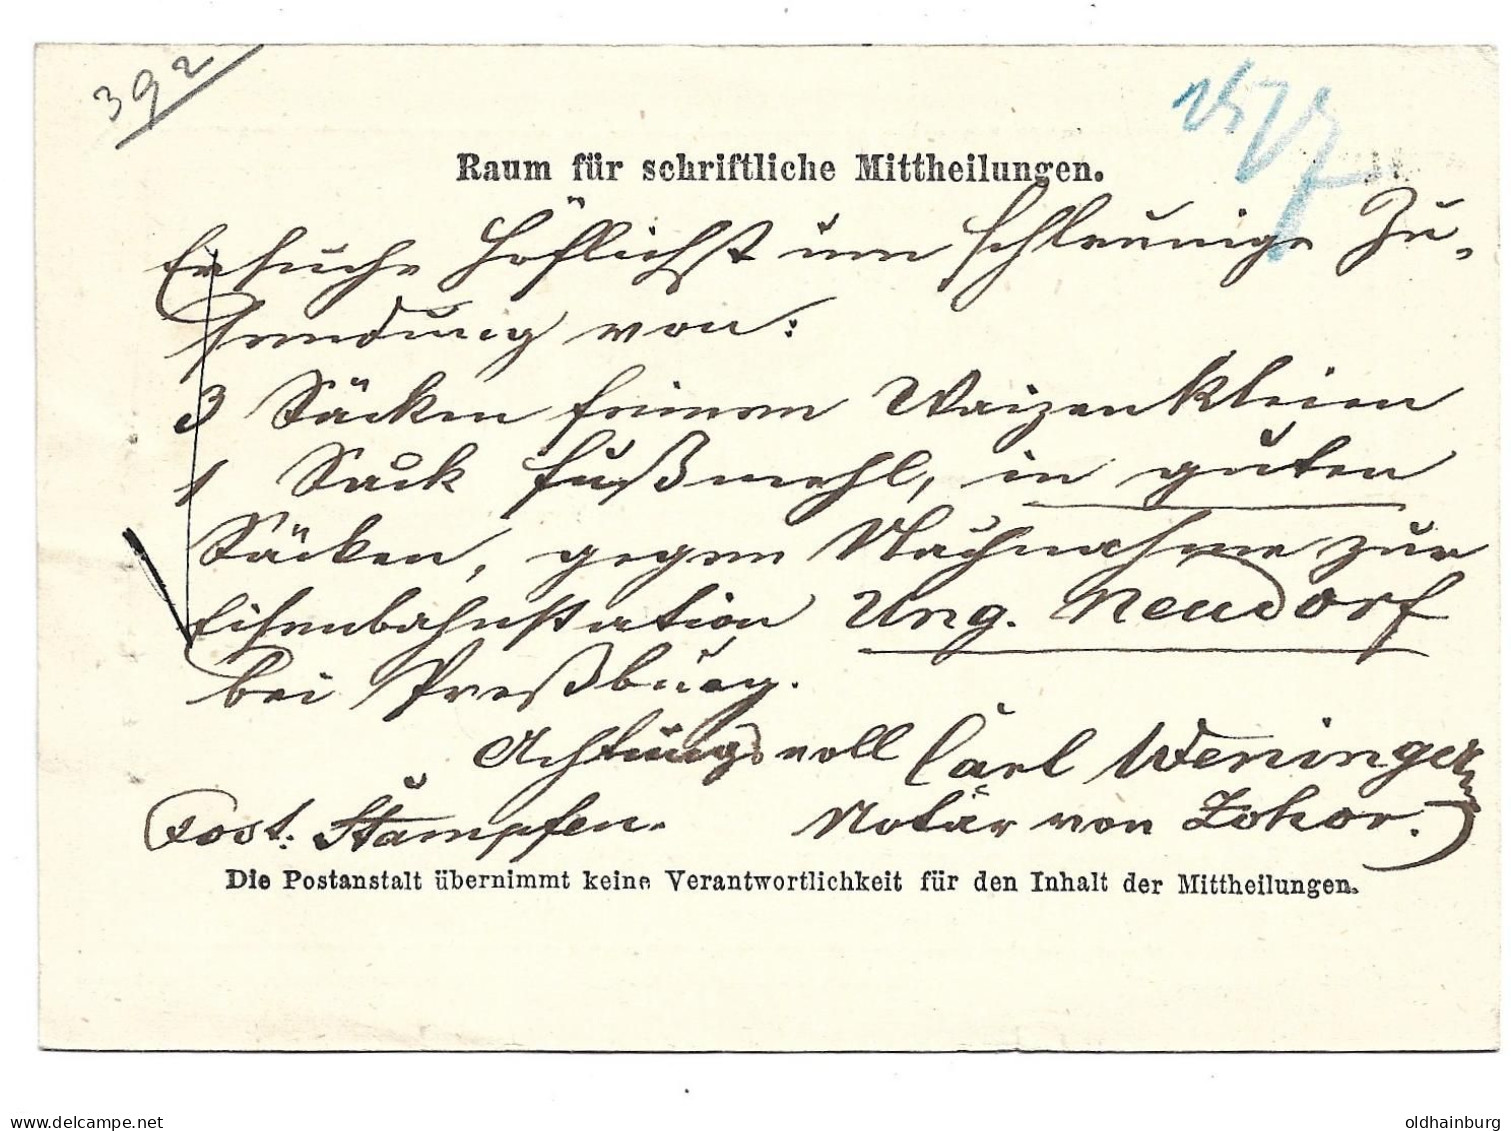 392
Raum für schriftliche Mittheilungen.
Ersuche höflichst um schleunige Zu-
sendung von:
3 Säcken feinem Waizenkleien
1 Sack Fußmehl, in guten
Säcken, gegen Nachnahme zur
Eisenbahnstation Ung. Neudorf
bei Preßburg.
Achtungsvoll Carl Weninger
Post: Stampfen. Notär von Zohor.
Die Postanstalt übernimmt keine Verantwortlichkeit für den Inhalt der Mittheilungen.
delcampe.net
oldhainburg